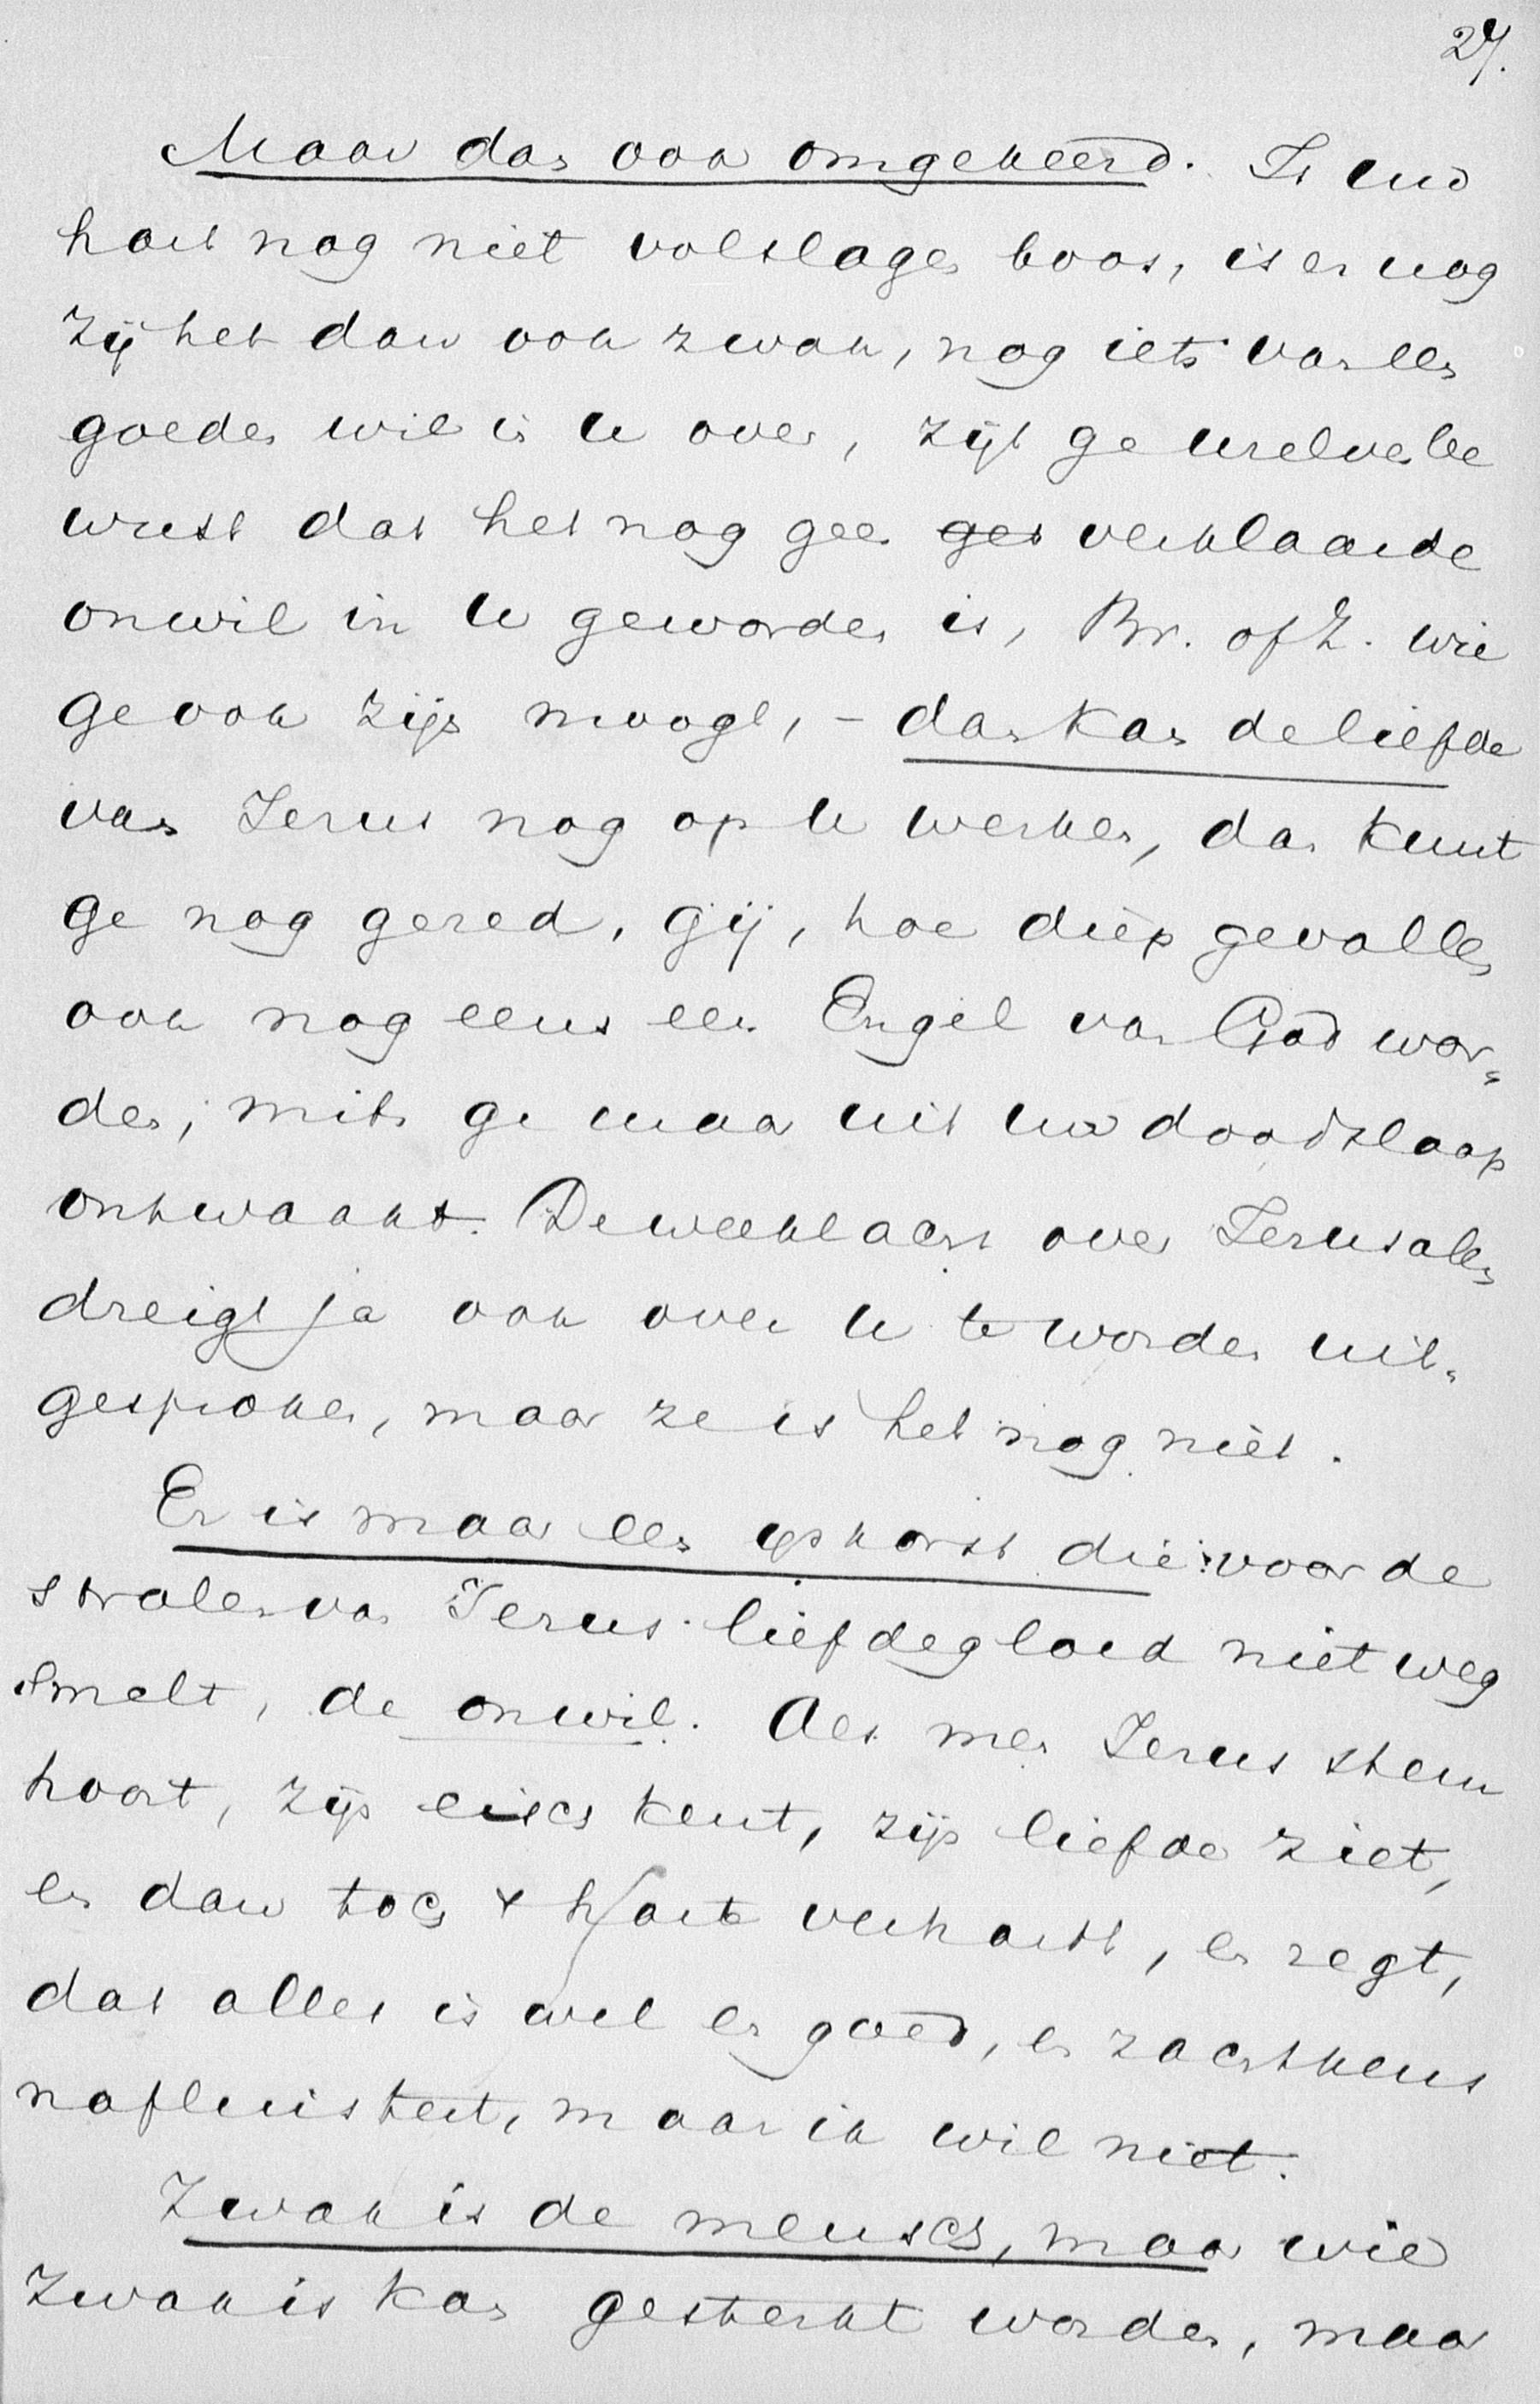 27.
Maar dan ook omgekeerd. Is uw
hart nog niet volslagen boos, is er nog
zij het dan ook zwak, nog iets van een
goeden wil in U over, zijt ge U zelve be
wust dat het nog geen ges verklaarde
onwil in U geworden is, Br. of Z. wie
ge ook zijn moogt, – dan kan de liefde
van Jezus nog op U werken, dan kunt
ge nog gered, gij, hoe diep gevallen
ook nog eens een Engel van God wor„
den, mits ge maar uit uw doodslaap
ontwaakt. De weeklacht over Jeruzalem
dreigt ja ook over U te worden uit„
gesproken, maar ze is het nog niet.
Er is maar een ijskorst die voor de
stralen van Jezus liefdegloed niet weg
smelt, de onwil. Als men Jezus stem
hoort, zijn eisch kent, zijn liefde ziet,
en dan toch 't harte verhardt, en zegt,
dat alles is wel en goed, en zachtkens
nafluistert, maar ik wil niet.
Zwak is de mensch, maar wie
zwak is kan gesterkt worden, maar